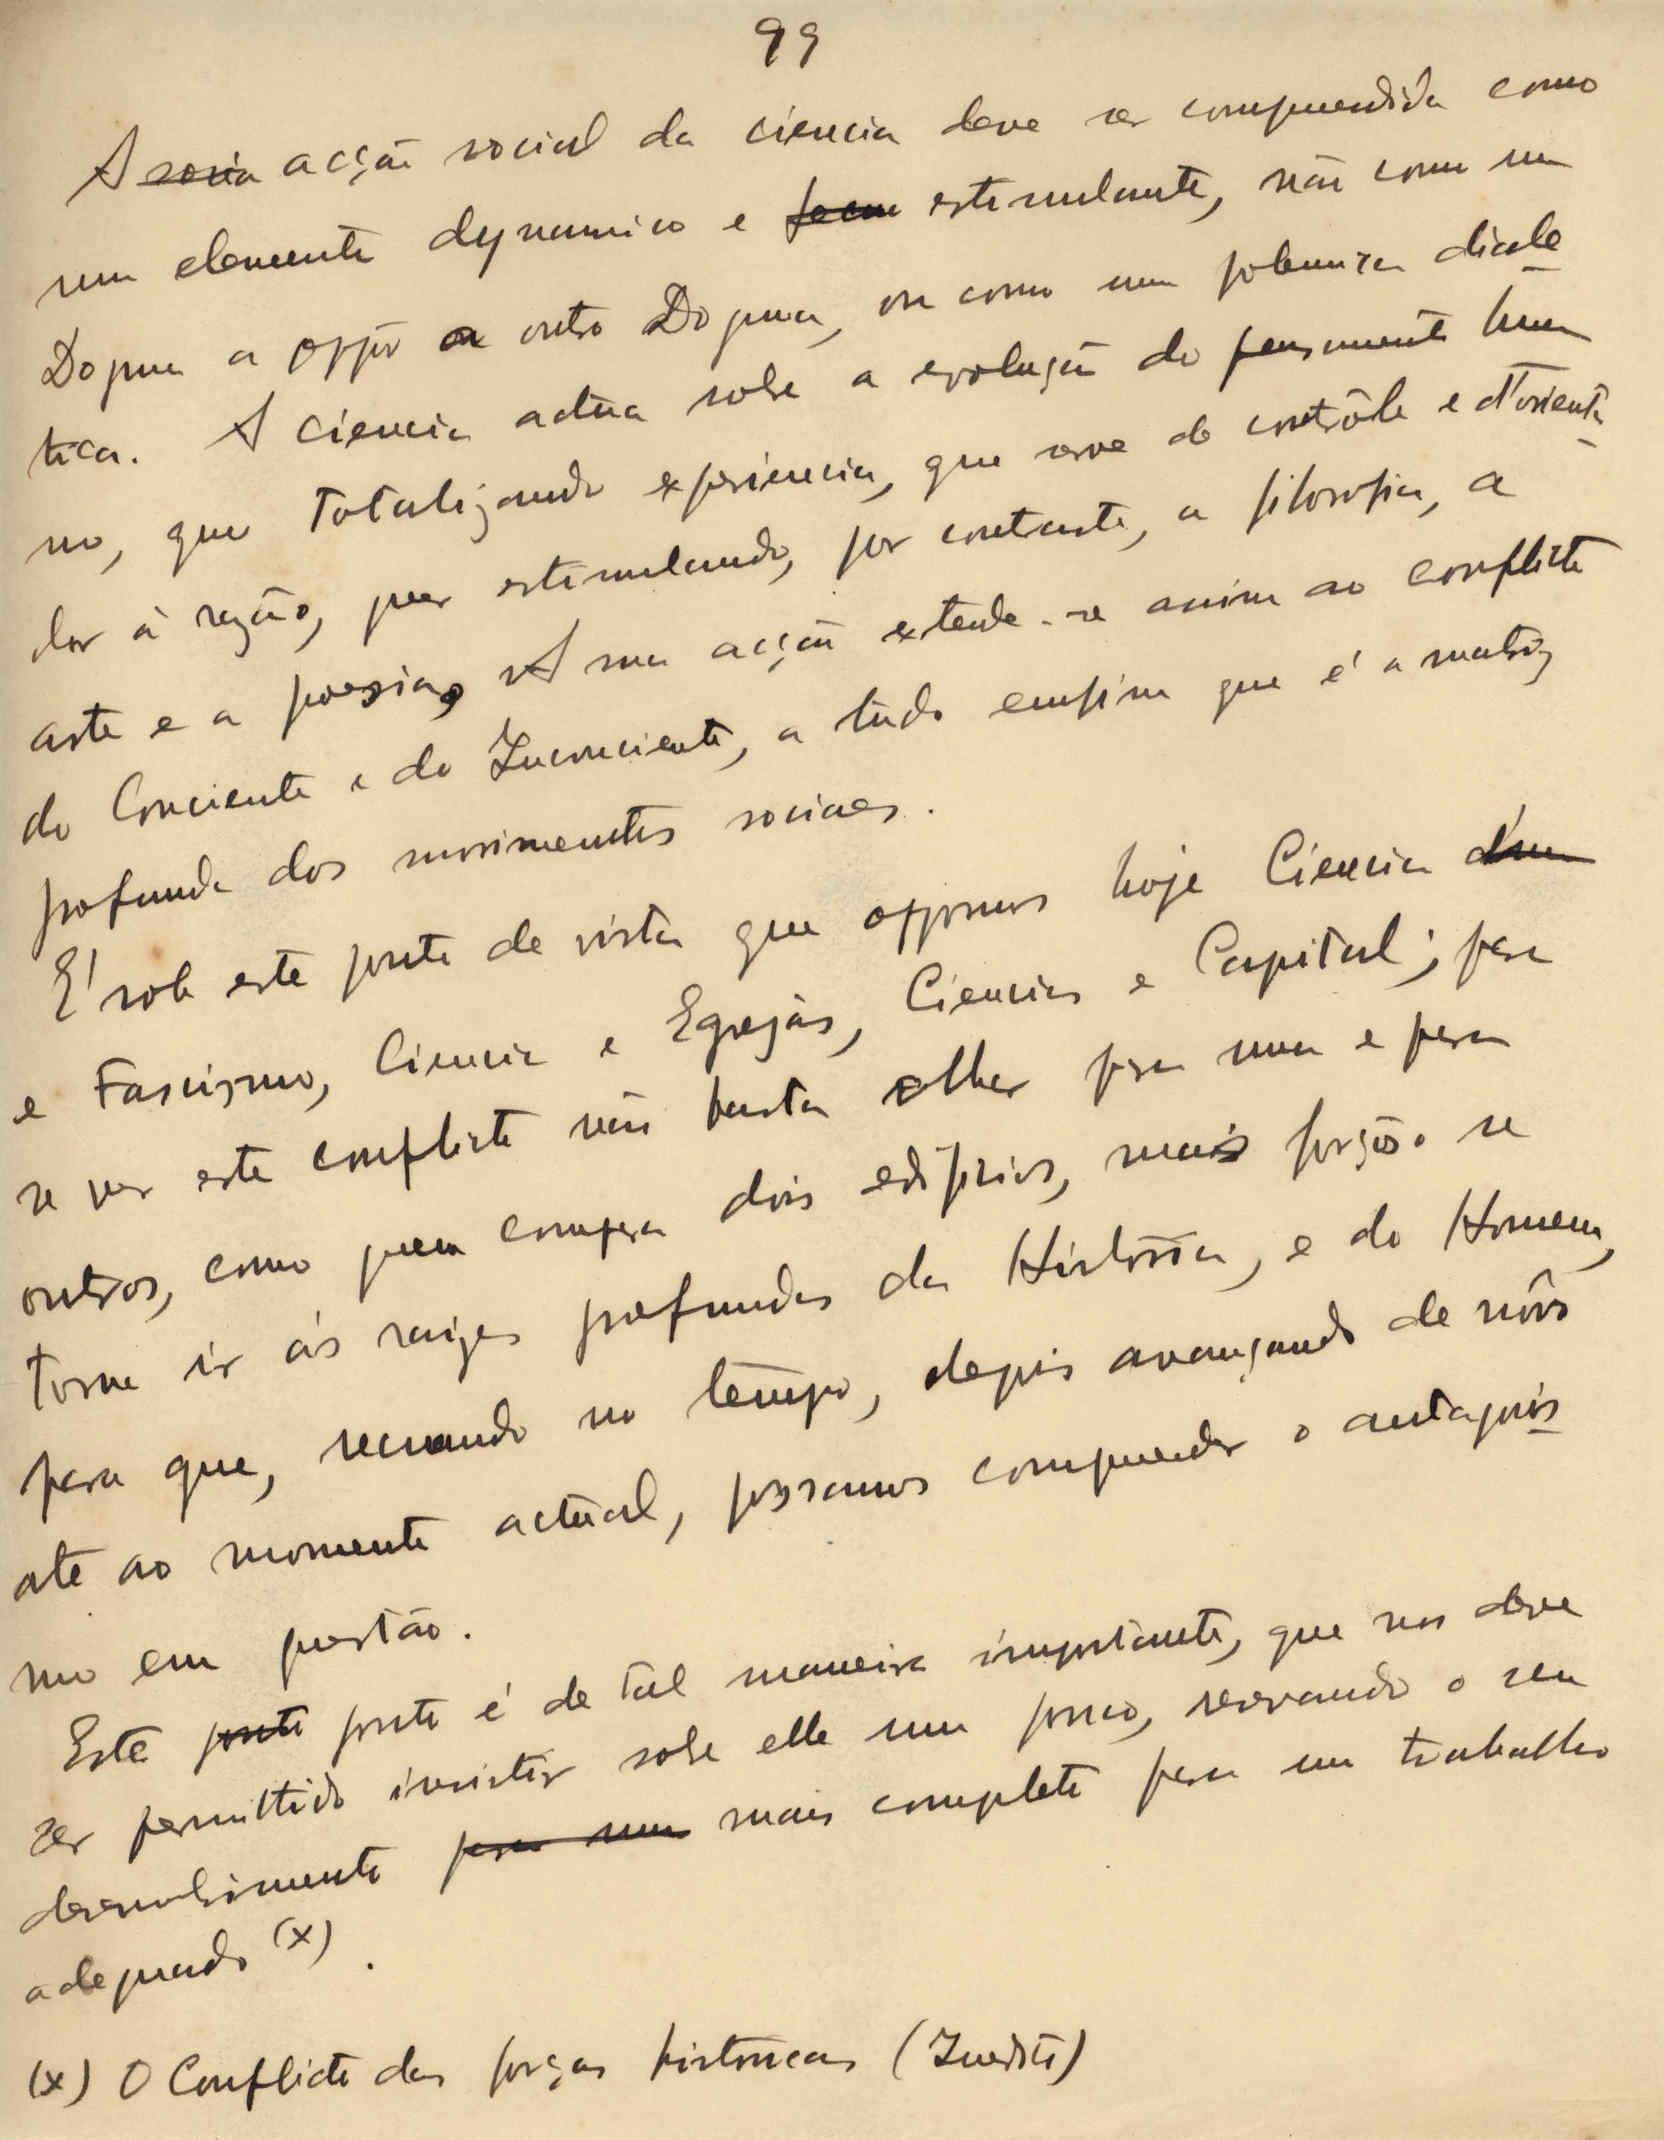 99
A ~~socia~~ acção social da ciencia deve ser comprendida como
um elemento dynamico e estimulante, não como um
Dogma a oppôr a outro Dogma, ou como uma polemica diale
tica. A ciencia actúa sobe a evolução do pensamento huma
no, quer totalizando experiencia, que serve de contrôle e d'orienta
dor à razão, quer estimulando, por contraste, a filosofia, a
arte e a poesia. A sua acção extende-se assim ao conflicto
do Conciente e do Inconciente, a tudo emfim que é a matriz
profunda dos movimentos sociaes.
É sob este ponto de vista que oppomos hoje Ciencia
e Fascismo, Ciencia e Egrejas, Ciencia e Capital; para
se ver este conflicto não basta olhar para uma e para
outros, como quem compara dois edificios, mais forçoso se
torna ir ás raizes profundas da História, e do Homem,
para que, recuando no tempo, depois avançando de nôvo
até ao momento actúal, possamos comprender o antagonis
mo em questão.
Este ~~ponto~~ ponto é de tal maneira importante, que nos deve
ser permittido insistir sobe elle um pouco, reservando o seu
desenvolvimento ~~para um~~ mais completo para um trabalho
adequado (x).
(x) O Conflicto das forças historicas (Inedito)